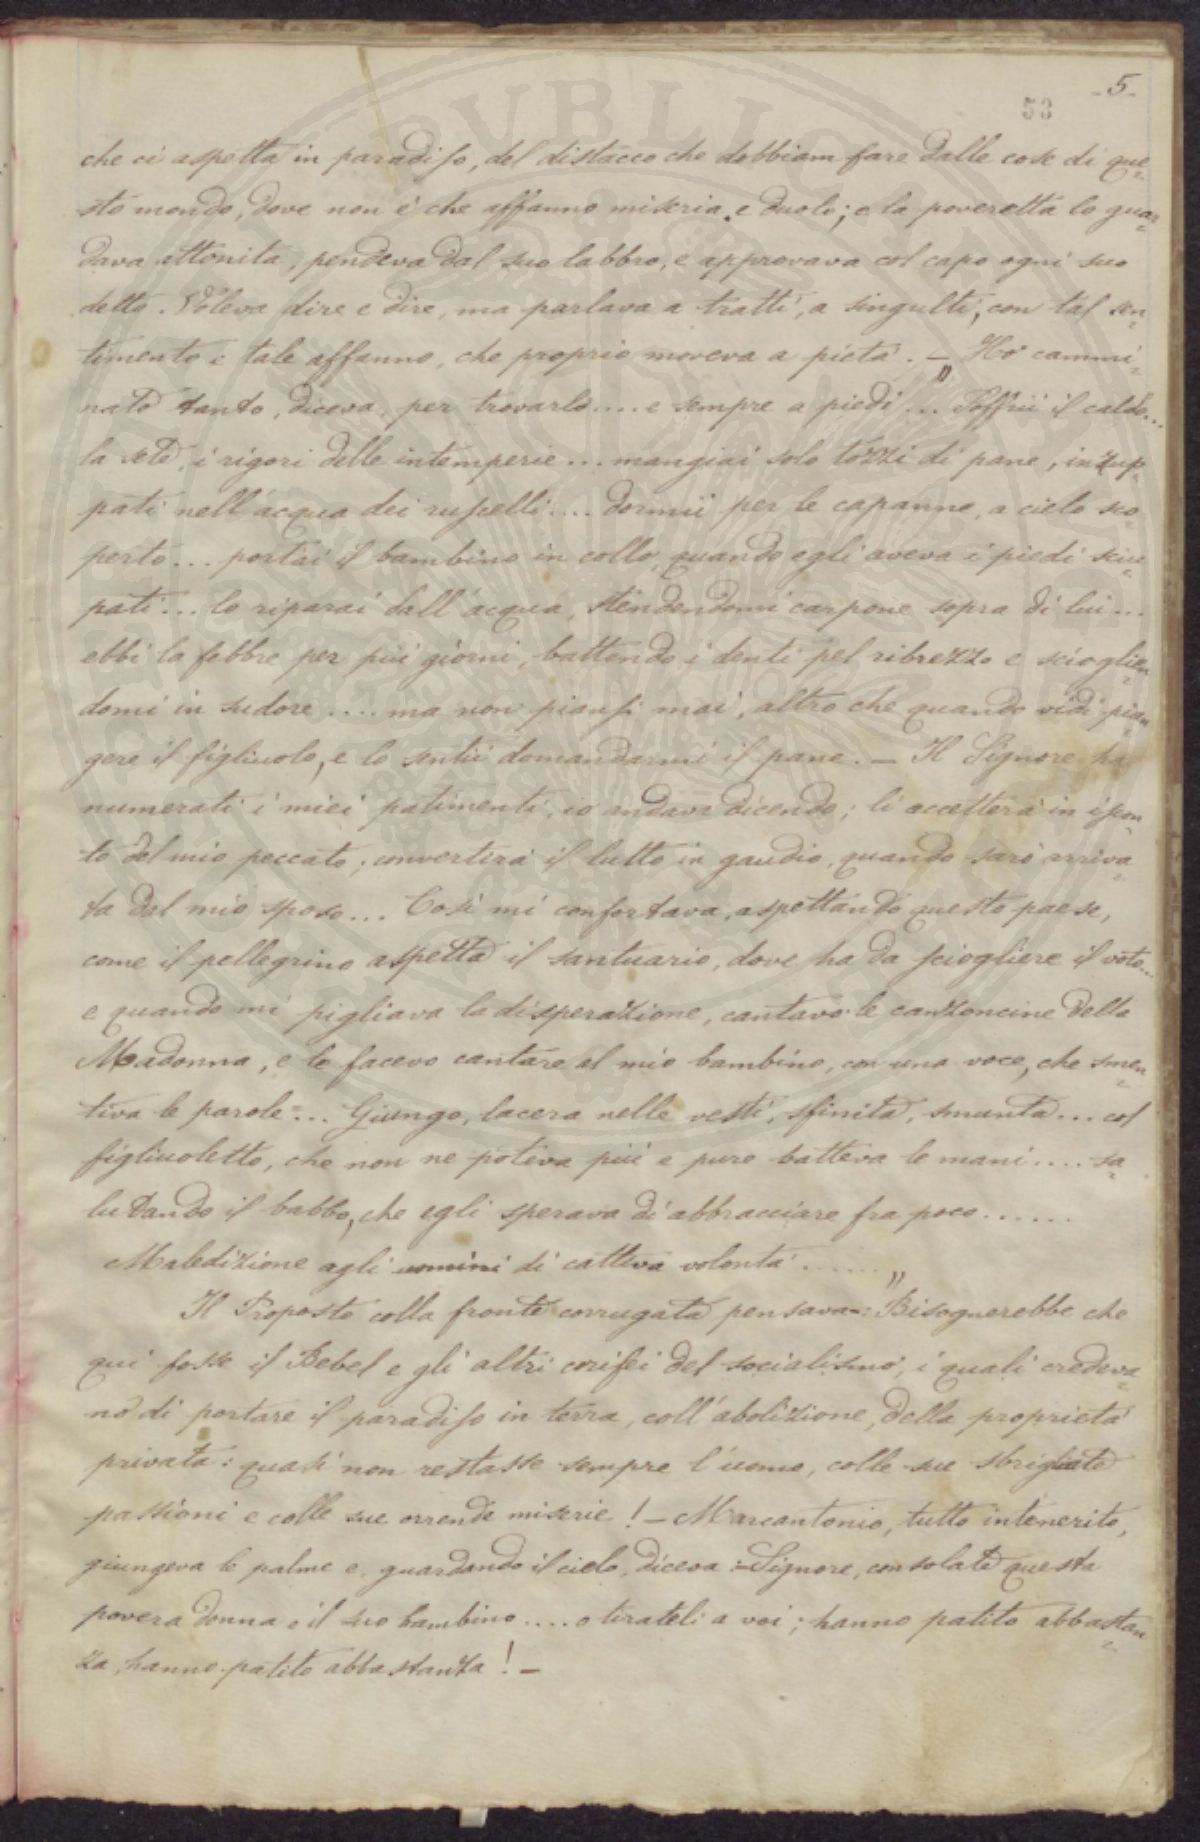 -5-
53
che ci aspetta in paradiso, del distacco che dobbiam fare dalle cose di que=
sto mondo, dove non è che affanno miseria e duolo; e la poveretta lo guar=
dava attonita, pendeva dal suo labbro, e approvava col capo ogni suo
detto. Voleva dire e dire, ma parlava a tratti, a singulti, con tal sen=
timento e tale affanno, che proprio moveva a pietà. — „Hò cammi=
nato tanto, diceva, per trovarlo.... e sempre a piedi... Soffrii il caldo...
la sete, i rigori delle intemperie... mangiai solo tozzi di pane, inzup=
pati nell'acqua dei ruscelli.... dormii per le capanne, a cielo sco=
perto... portai il bambino in collo, quando egli aveva i piedi sciu=
pati... lo riparai dall'acqua, stendendomi carpone sopra di lui...
ebbi la febbre per più giorni, battendo i denti pel ribrezzo e scioglien=
domi in sudore.... ma non piansi mai, altro che quando vidi pian=
gere il figliuolo, e lo sentii domandarmi il pane. — Il Signore ha
numerati i miei patimenti, io andava dicendo; li accetterà in iscon=
to del mio peccato; convertirà il lutto in gaudio, quando sarò arriva=
ta dal mio sposo... Così mi confortava, aspettando questo paese,
come il pellegrino aspetta il santuario, dove ha da sciogliere il voto...
e quando mi pigliava la disperazione, cantavo le canzoncine della
Madonna, e le facevo cantare al mio bambino, con una voce, che smen=
tiva le parole... Giungo, lacera nelle vesti, sfinita, smunta... col
figliuoletto, che non ne poteva più e pure batteva le mani.... sa=
lutando il babbo, che egli sperava di abbracciare fra poco......
Maledizione agli uomini di cattiva volontà......."
Il Proposto colla fronte corrugata pensava=: Bisognerebbe che
qui fosse il Bebel e gli altri corifei del socialismo, i quali credeva=
no di portare il paradiso in terra, coll'abolizione, della proprietà
privata: quasi non restasse sempre l'uomo, colle sue sbrigliate
passioni e colle sue orrende miserie! — Marcantonio, tutto intenerito,
giungeva le palme e, guardando il cielo, diceva:=Signore, consolate questa
povera donna e il suo bambino.... o tirateli a voi; hanno patito abbastan=
za, hanno patito abbastanza! —